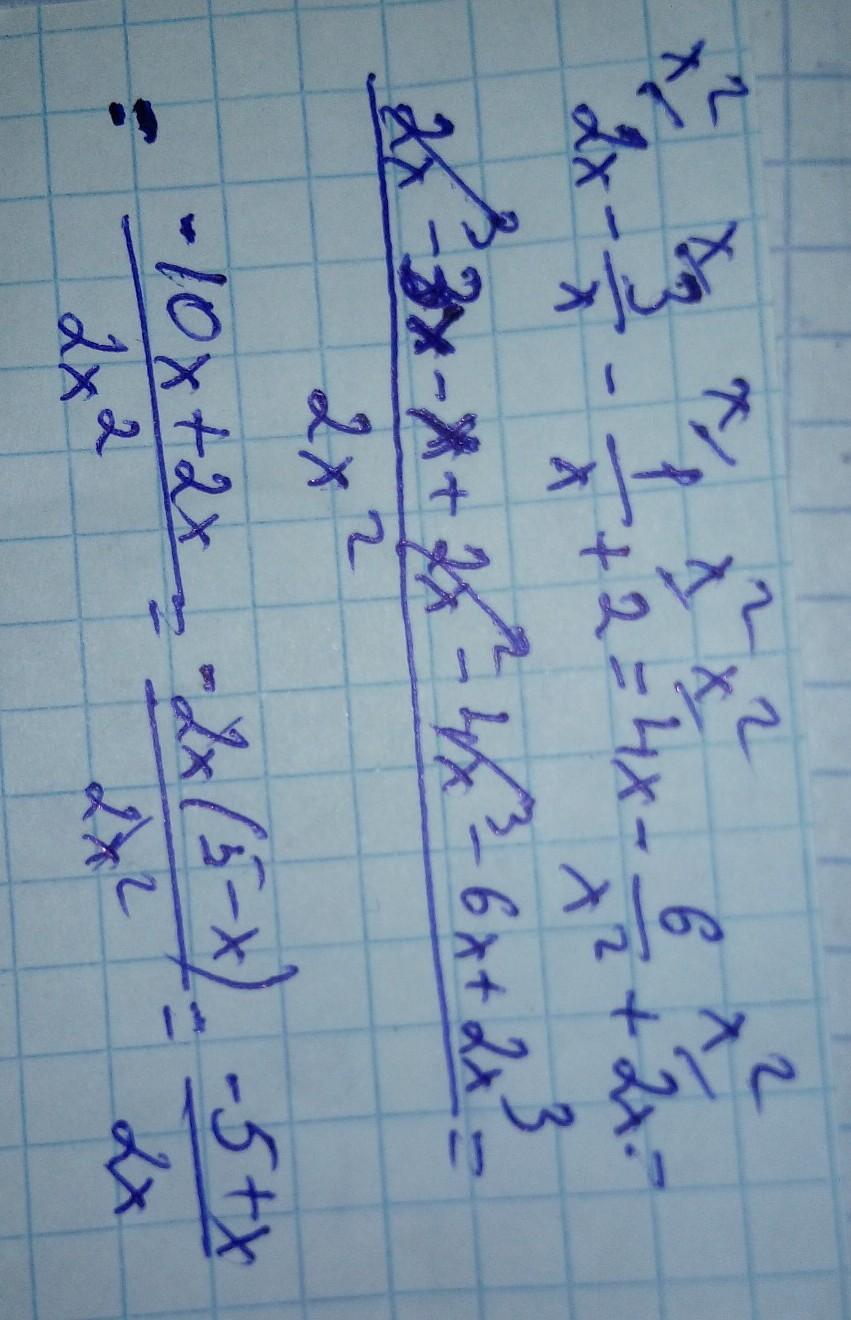 x² x x x² x² x²
2x - 3/x - 1/x + 2 = 4x - 6/x² + 2x =
2x³ - 3x - x + 2x² - 4x³ - 6x + 2x³ =
2x²
= -10x + 2x / 2x² = -2x(5 - x) / 2x² = -5 + x / 2x